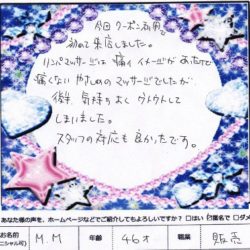 今回クーポン利用で
初めて来店しました。
リンパマッサージは痛いイメージがあったので
痛くない やさしめのマッサージでしたが
後半、気持ちよく ウトウトして
しまいました。
スタッフの対応も良かったです。
あなた様の声を、ホームページなどでご紹介してもよろしいですか？ □はい □匿名で □ダメ
お名前 M.M 年齢 46才 職業 販売
ニシャル可)